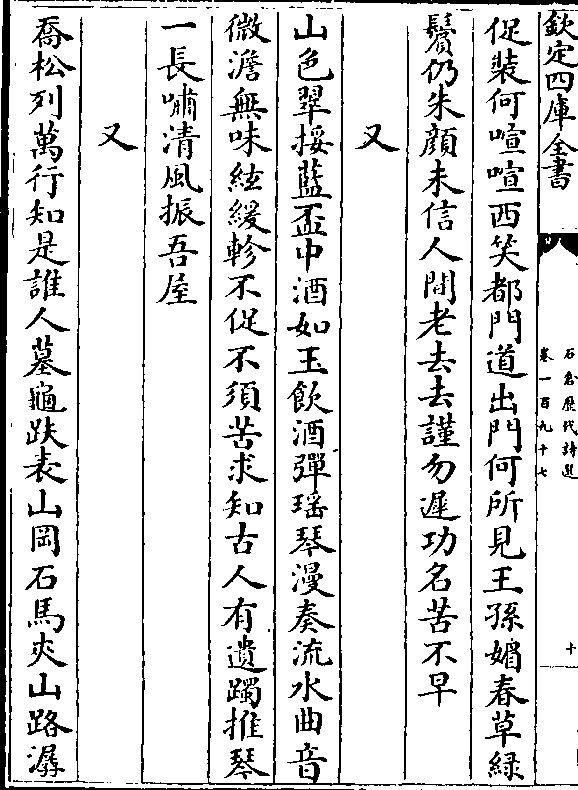 欽定四庫全書
石倉歷代詩選
卷一百九十七
十
促裝何喧喧西笑都門道出門何所見王孫媚春草緑
鬢仍朱顔未信人間老去去謹勿遲功名苦不早
又
山色翠挼藍盃中酒如玉飲酒彈瑶琴漫奏流水曲音
微澹無味絃緩軫不促不須苦求知古人有遺躅推琴
一長嘯清風振吾屋
又
喬松列萬行知是誰人墓龜趺表山岡石馬夾山路潺